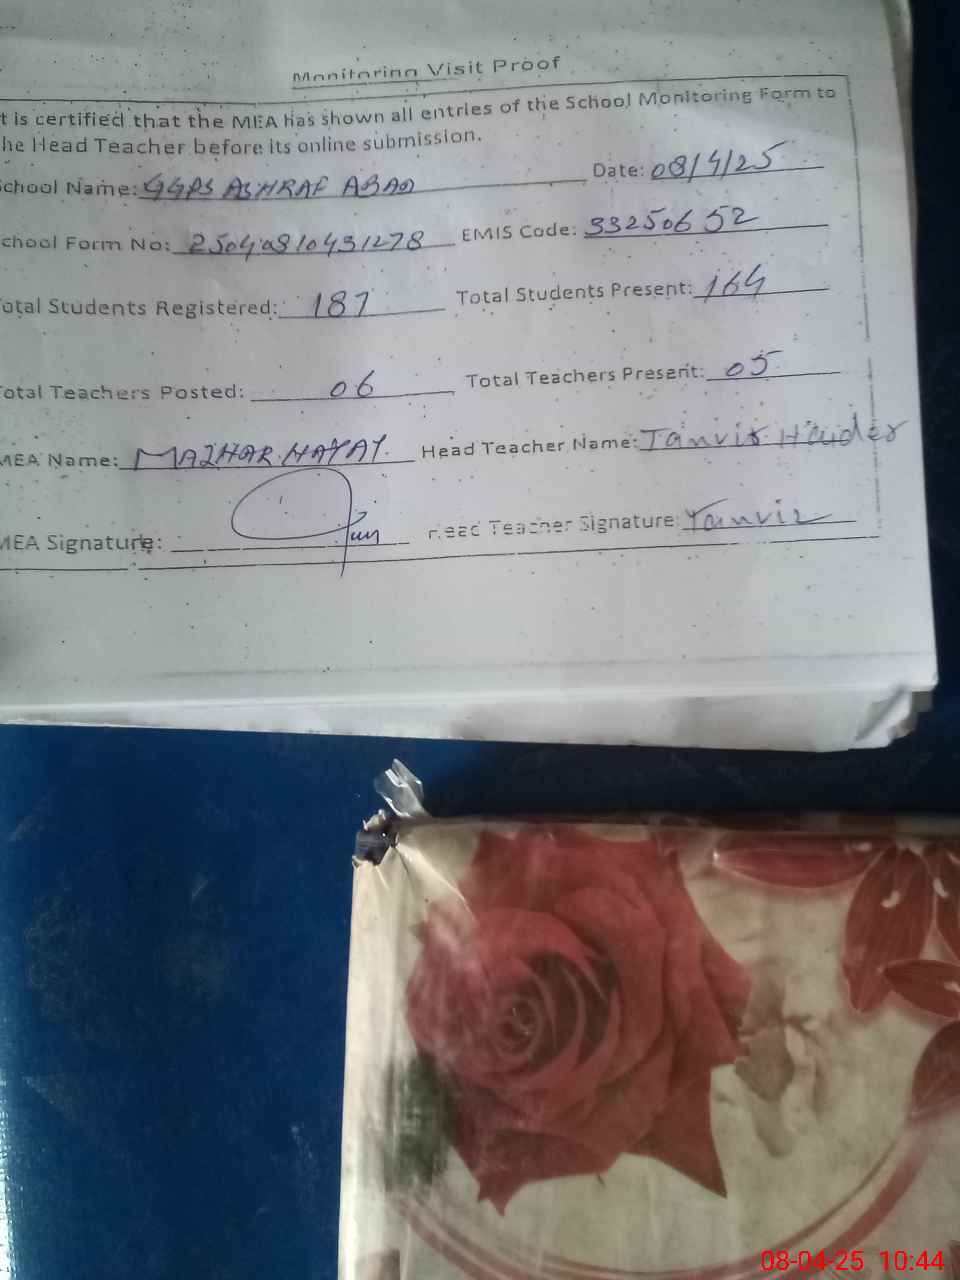 Monitoring Visit Proof
t is certified that the MEA has shown all entries of the School Monitoring Form to
he Head Teacher before its online submission.
chool Name: GGPS ASHRAF ABAD Date: 08/4/25
chool Form No: 25040810431278 EMIS Code: 33250652
otal Students Registered: 187 Total Students Present: 164
otal Teachers Posted: 06 Total Teachers Present: 05
MEA Name: MAZHAR HAYAT. Head Teacher Name: Tanvir Haider
MEA Signature: Head Teacher Signature: Tanvir
08-04-25 10:44